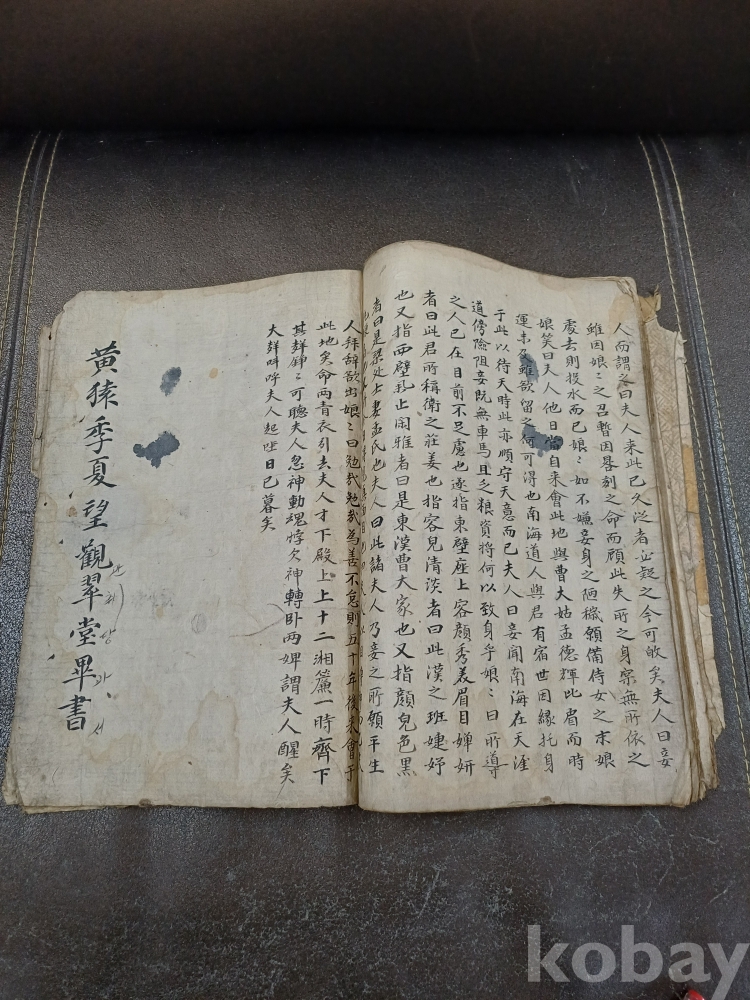 人而謂之曰夫人來此已久從者必疑之今可啟矣夫人曰妾
雖因娘〻之召暫因晷刻之命而顧此失所之身宲無所依之
處去則投水而已娘〻如不嫌妾身之陋穢願備侍女之末娘
娘笑曰夫人他日當自來會此地與曹大姑孟德輝比肩而時
運未及雖欲留之何可得也南海道人與君有宿世因緣托身
于此以待天時此亦順守天意而已夫人曰妾聞南海在天涯
道傍險阻妾既無車馬且乏粮資將何以致身乎娘〻曰所導
之人已在目前不足慮也遂指東壁座上容顏秀美眉目嬋妍
者曰此君所稱衛之莊姜也指容皃清淡者曰此漢之班婕妤
也又指西壁 止閑雅者曰是東漢曹大家也又指顏皃色黑
者曰是梁处士妻孟氏也夫人曰此諸夫人乃妾之所願平生
人拜辞欲出娘〻曰勉哉勉哉為善不怠則五十年後來會于
此地矣命兩青衣引去夫人才下殿上上十二湘簾一時齊下
其聲錚〻可聽夫人忽神動魂悸欠神轉卧兩婢謂夫人醒矣
大聲呌呼夫人起坐日已暮矣
黃猿季夏望觀翠堂畢書
당
서
kobay